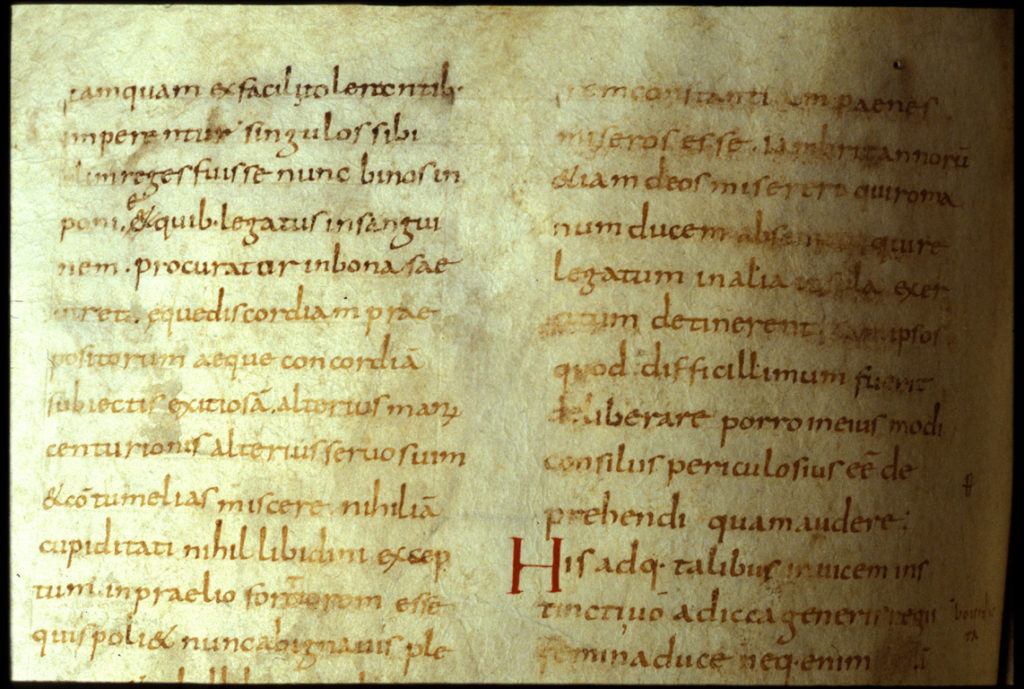 tamquam exfacili tolerantib·
imperentur singulos sibi
olim reges fuisse nunc binos in
poni. e&quib· legatus insangui
nem. procurator inbona sae
uiret. eque discordiam prae
positorum aeque concordiā
subiectis exitiosā. alterius man
centurionis alterius seruos uim
&cōtumelias miscere. nihil iā
cupiditati nihil libidini excep
tum. in praelio fortiorem esse
qui spoli& nunc abignauis ple
constanti paenes
miseros esse. Iam britannorū
&iam deos misereri qui roma
num ducem absentem qui re
legatum in alia insula exer
citum detinerent. iam ipsos
quod difficillimum fuerit
deliberare porro in eius modi
consiliis periculosius eē de
prehendi quam audere.
His adq· talibus inuicem ins
tincti uoadicca generis regii
femina duce neq· enim